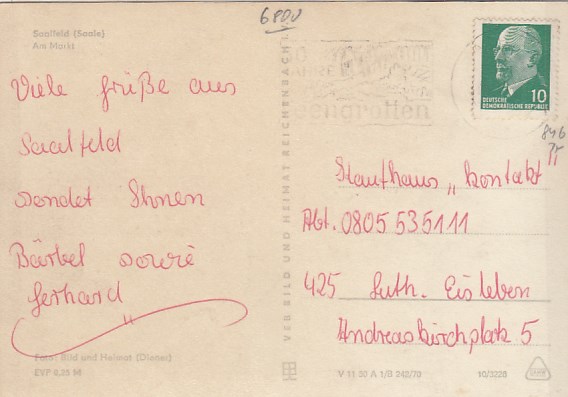 6800
Saalfeld (Saale)
Am Markt
Feengrotten
DEUTSCHE
DEMOKRATISCHE REPUBLIK
10
846
Viele Grüße aus
Saalfeld
sendet Ihnen
Bärbel sowie
Gerhard
Kaufhaus „Kontakt"
Abt. 0805 535111
425 Luth. Eisleben
Andreaskirchplatz 5
VEB BILD UND HEIMAT REICHENBACH I. V.
Foto: Bild und Heimat (Dienes)
EVP 0,25 M
V 11 30 A 1/B 242/70
10/3228